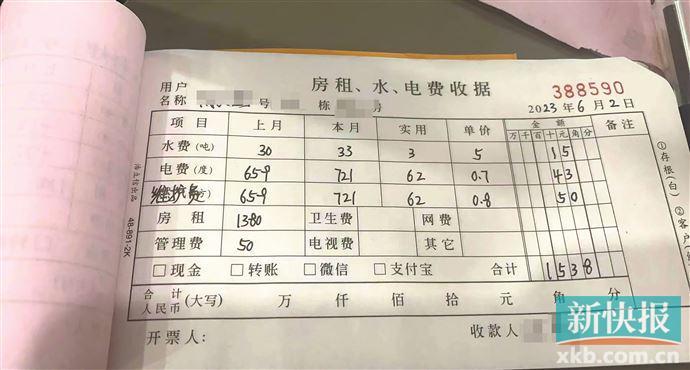 房租、水、电费收据 388590
用户
名称 号 栋 号 2023年6月2日
项目 上月 本月 实用 单价 金额 备注
万 千 百 十 元 角 分
水费(吨) 30 33 3 5 15
电费(度) 659 721 62 0.7 43
维护费 方) 659 721 62 0.8 50
房租 1380 卫生费 网费
管理费 50 电视费 其它
□现金 □转账 □微信 □支付宝 合计 1538
合计
人民币(大写) 万 仟 佰 拾 元 角 分
开票人: 收款人
浩立信出品 48-891-2K
①存根(白) ②客户
新快报
xkb.com.cn